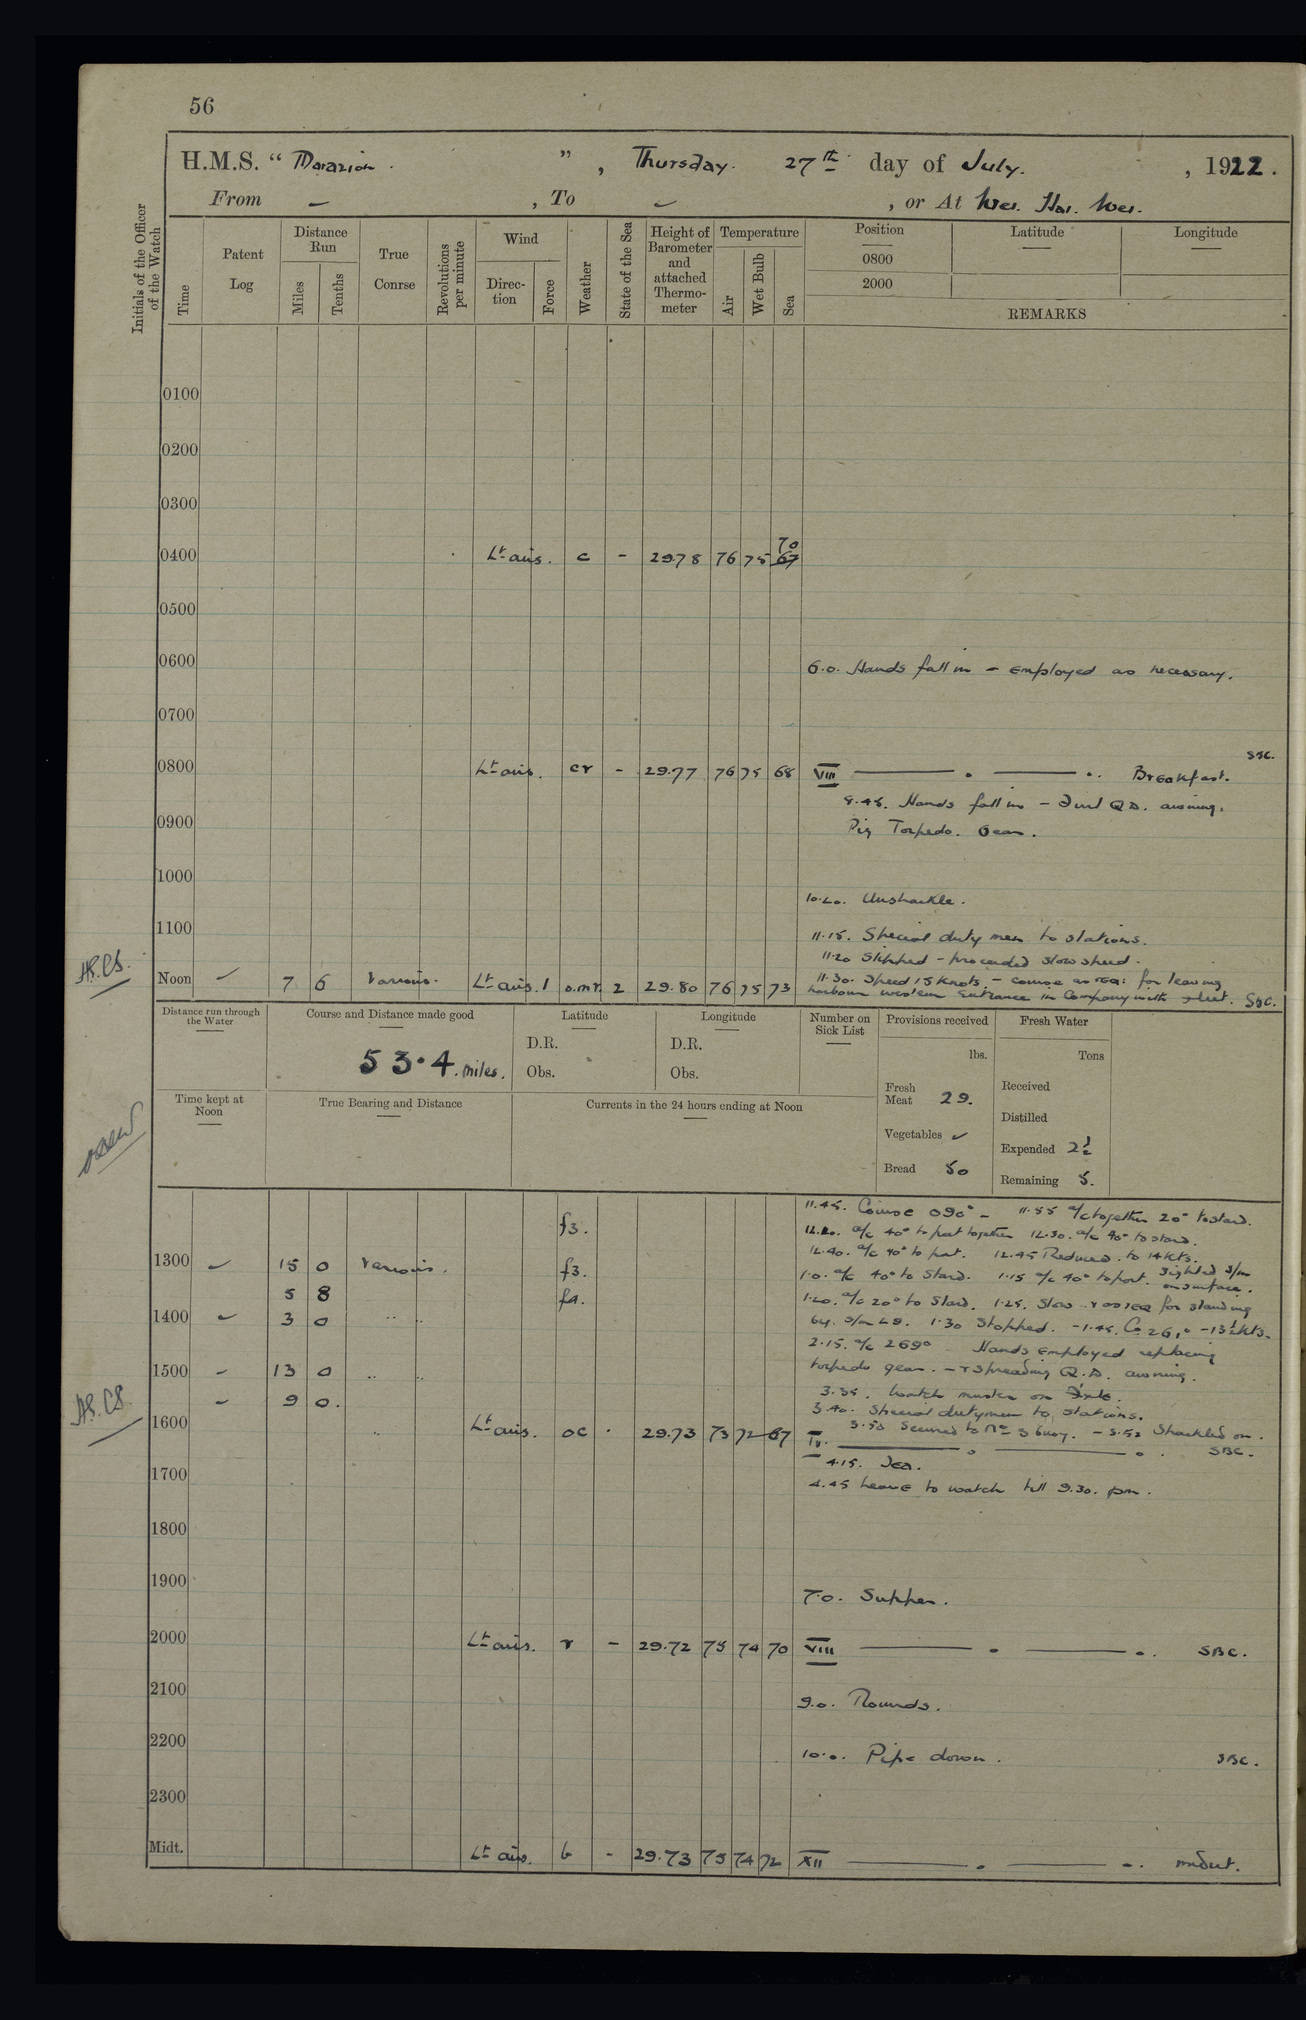 56
H.M.S. " Marazion. ", Thursday. 27th day of July. , 1922.
From - , To - , or At Wei. Hai. Wei.
Initials of the Officer of the Watch
Time
Patent Log
Distance Run
Miles
Tenths
True Conrse
Revolutions per minute
Wind
Direction
Force
Weather
State of the Sea
Height of Barometer and attached Thermometer
Temperature
Air
Wet Bulb
Sea
Position
Latitude
Longitude
0800
2000
REMARKS
0100
0200
0300
0400 Lt airs. c - 29.78 76 75 67 70
0500
0600 6.0. Hands fall in - Employed as necessary.
0700
SBC.
0800 Lt airs. cr - 29.77 76 75 68 VIII Breakfast.
8.45. Hands fall in - Furl Q.D. awning.
0900 Rig Torpedo. Gear.
1000
10.20. Unshackle.
1100 11.15. Special duty men to stations.
11.20 Slipped - proceeded slow speed.
Noon 7 6 Various. Lt airs. 1 o.m.r. 2 29.80 76 75 73 11.30. Speed 15 Knots. - course as req: for leaving
harbour western Entrance in Company with fleet. SBC.
Distance run through the Water
Course and Distance made good
53.4. miles.
Latitude
D.R.
Obs.
Longitude
D.R.
Obs.
Number on Sick List
Provisions received
lbs.
Fresh Meat 29.
Vegetables
Bread 50
Fresh Water
Tons
Received
Distilled
Expended 2½
Remaining 5.
Time kept at Noon
True Bearing and Distance
Currents in the 24 hours ending at Noon
11.45. Course 090° - 11.55 a/c together 20° to stard.
f3. 12.20. a/c 40° to port together 12.30. a/c 40° to stard.
12.40. a/c 40° to port. 12.45 Reduced to 14 Kts.
1300 15 0 Various. f3. 1.0. a/c 40° to Stard. 1.15 a/c 40° to port. Sighted S/m on surface.
5 8 f4. 1.20. a/c 20° to Stard. 1.25. Slow & as req for standing
1400 3 0 " " by. S/m L9. 1.30 Stopped. - 1.45. Co 261° - 13½ Kts.
2.15. a/c 269° Hands Employed replacing
1500 13 0 " " torpedo gear. - & spreading Q.D. awning.
9 0. 3.35. Watch muster on
3.40. Special dutymen to stations.
1600 Lt airs. oc . 29.73 73 72 67 3.50 Secured to No 3 buoy. - 3.52 Shackled on.
IV. SBC.
4.15. Tea.
1700 4.45 Leave to watch till 9.30. pm.
1800
1900 7.0. Supper.
2000 Lt airs. r - 29.72 75 74 70 VIII SBC.
2100 9.0. Rounds.
2200 10.0. Pipe down. SBC.
2300
Midt. Lt airs. b - 29.73 75 74 72 XII